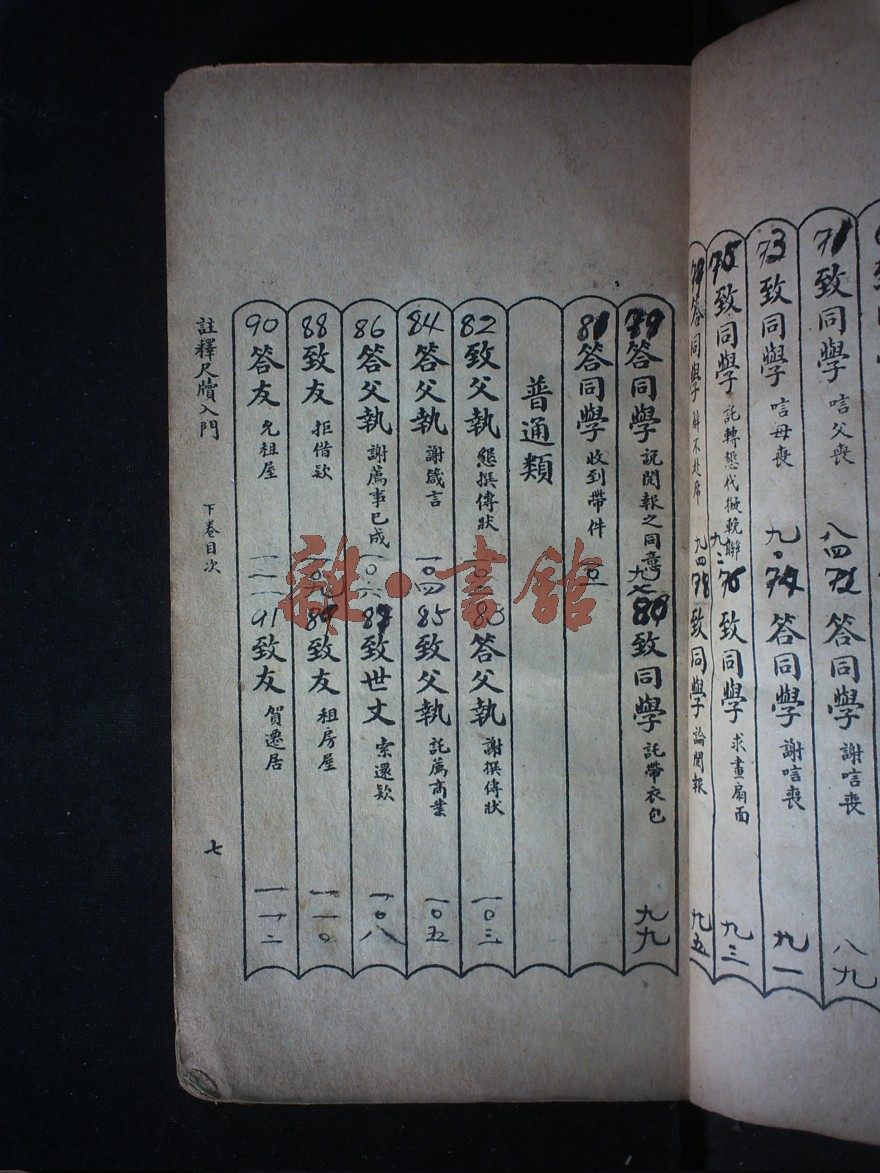 71 致同學 唁父喪 八四 72 答同學 謝唁喪 八九
73 致同學 唁母喪 九〇 74 答同學 謝唁喪 九一
75 致同學 託轉懇代擬輓聯 九二 76 致同學 求畫扇面 九三
答同學 九四 78 致同學 論閱報 九五
79 答同學 説閱報之同意 九七 80 致同學 託帶衣包 九九
81 答同學 收到帶件
普通類
82 致父執 懇撰傳狀 83 答父執 謝撰傳狀 一〇三
84 答父執 謝箴言 一〇四 85 致父執 託薦商業 一〇五
86 答父執 謝薦事已成 一〇六 87 致世丈 索還欵 一〇八
88 致友 拒借欵 一〇九 89 致友 租房屋 一一〇
90 答友 允租屋 一一一 91 致友 賀遷居 一一二
註釋尺牘入門 下卷目次 七
雜·書館